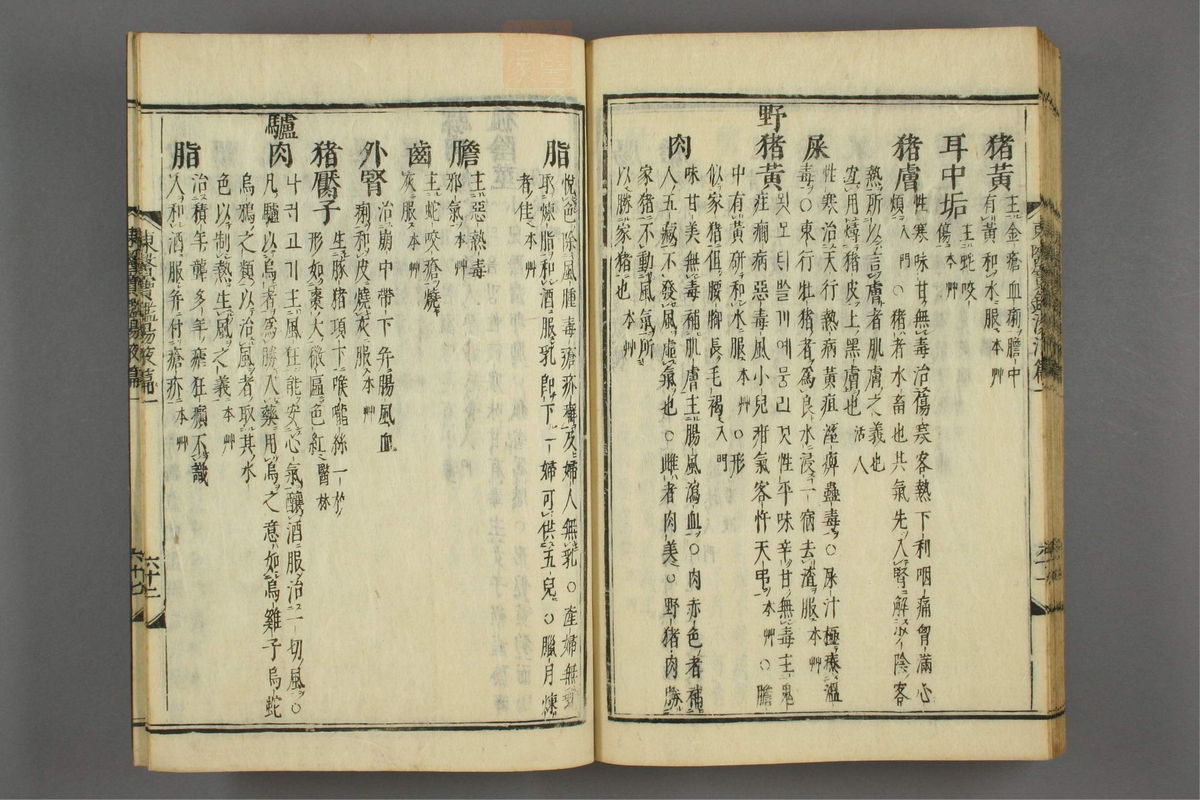 猪黃主金瘡血痢膽中
有黃和水服本艸
耳中垢主蛇咬
傷本艸
猪膚性寒味甘無毒治傷寒客熱下利咽痛胷滿心
煩入門○猪者水畜也其氣先入腎解少陰客
熱所以言膚者肌膚之義也
宜用燖猪皮上黑膚也活人
屎性寒治天行熱病黃疸濕痺蠱毒○屎汁極療溫
毒○東行牡猪者爲良水浸一宿去渣服本艸
野猪黃묏도틔쓸게예뭉긘것性平味辛甘無毒主鬼
疰癎病惡毒風小兒疳氣客忤天吊本艸○膽
中有黃硏和水服本艸○形
似家猪但腰脚長毛褐入門
肉味甘美無毒補肌膚主腸風瀉血○肉赤色者補
人五藏不發風虛氣也○雌者肉美○野猪肉勝
家猪不動風氣所
以勝家猪也本艸
脂悅色除風腫毒瘡疥癬及婦人無乳○產婦無乳
取煉脂和酒服乳卽下一婦可供五兒○臘月煉
者佳本艸
膽主惡熱毒
邪氣本艸
齒主蛇咬瘡燒
灰服本艸
外腎治崩中帶下弁腸風血
痢和皮燒灰服本艸
猪靨子生豚猪項下喉嚨絲一枚
形如棗大微匾色紅醫林
驢肉나귀고기主風狂能安心氣釀酒服治一切風○
凡驢以烏者爲勝入藥用烏之意如烏雞子烏蛇
烏鴉之類以治風者取其水
色以制熱生風之義本艸
脂治積年聾多年瘧狂癲不識
人和酒服弁付瘡疥本艸
東醫寶鑑湯液篇一
六十二